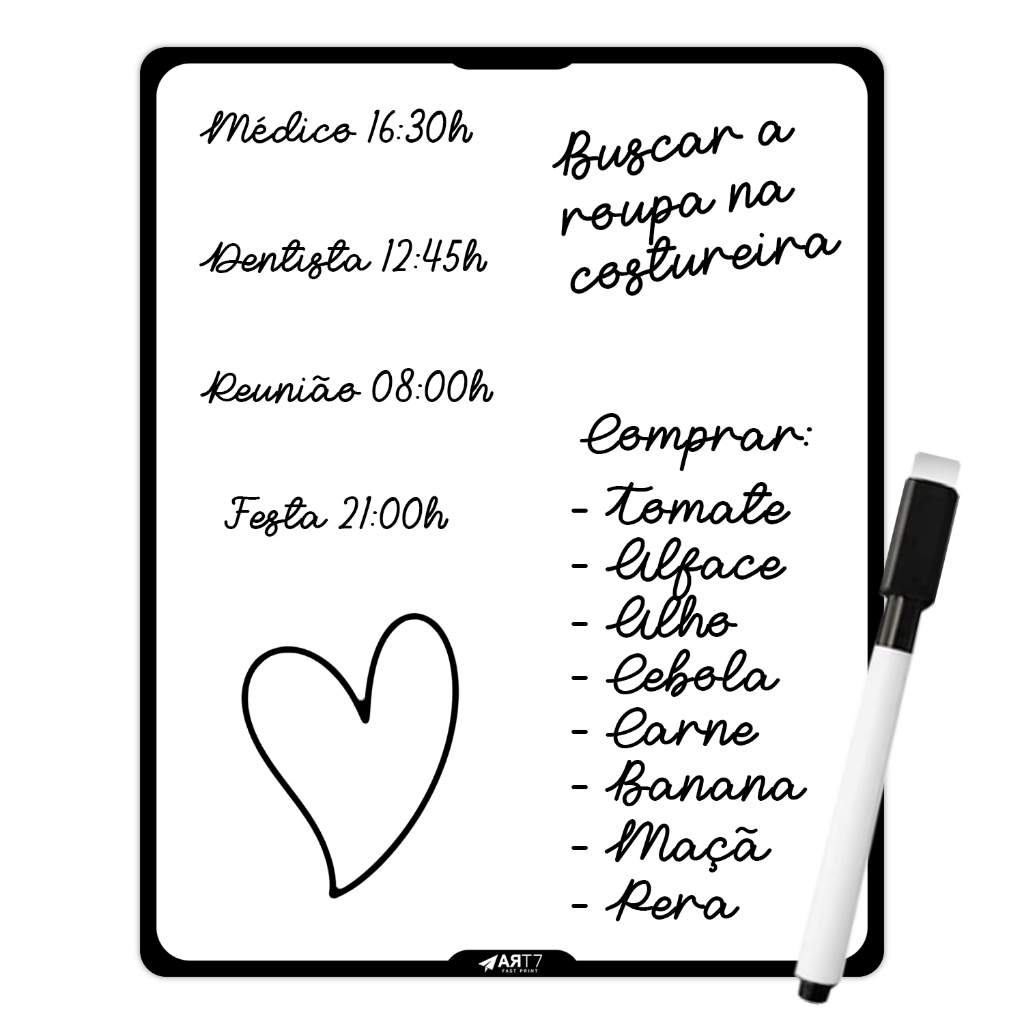 Médico 16:30h
Dentista 12:45h
Reunião 08:00h
Festa 21:00h
Buscar a
roupa na
costureira
Comprar:
- Tomate
- Alface
- Alho
- Cebola
- Carne
- Banana
- Maçã
- Pera
ART7
FAST PRINT